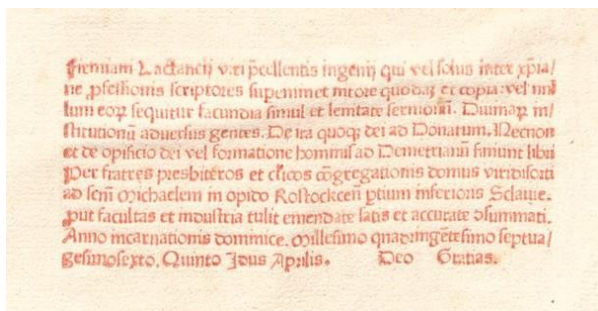 Firmiani Lactancij viri p̄cellentis ingenij qui vel solus inter xp̄ia/
ne ꝓfessionis scriptores supeminet nitore quodaꝫ et copia: vel nul
lum eoꝝ sequitur facundia simul et lenitate sermonū. Diuinaꝝ in/
stitutionū aduersus gentes. De ira quoqꝫ dei ad Donatum. Necnon
et de opificio dei vel formatione hominis ad Demetrianū finiunt libri
Per fratres presbiteros et cl̄icos cōgregationis domus viridisorti
ad scm̄ Michaelem in opido Rostockcen̄ ꝑtium inferioris Sclauie.
ꝓut facultas et industria tulit emendate satis et accurate ꝯsummati.
Anno incarnationis dominice. Millesimo quadringētesimo septua/
gesimosexto. Quinto Idus Aprilis. Deo Gratias.